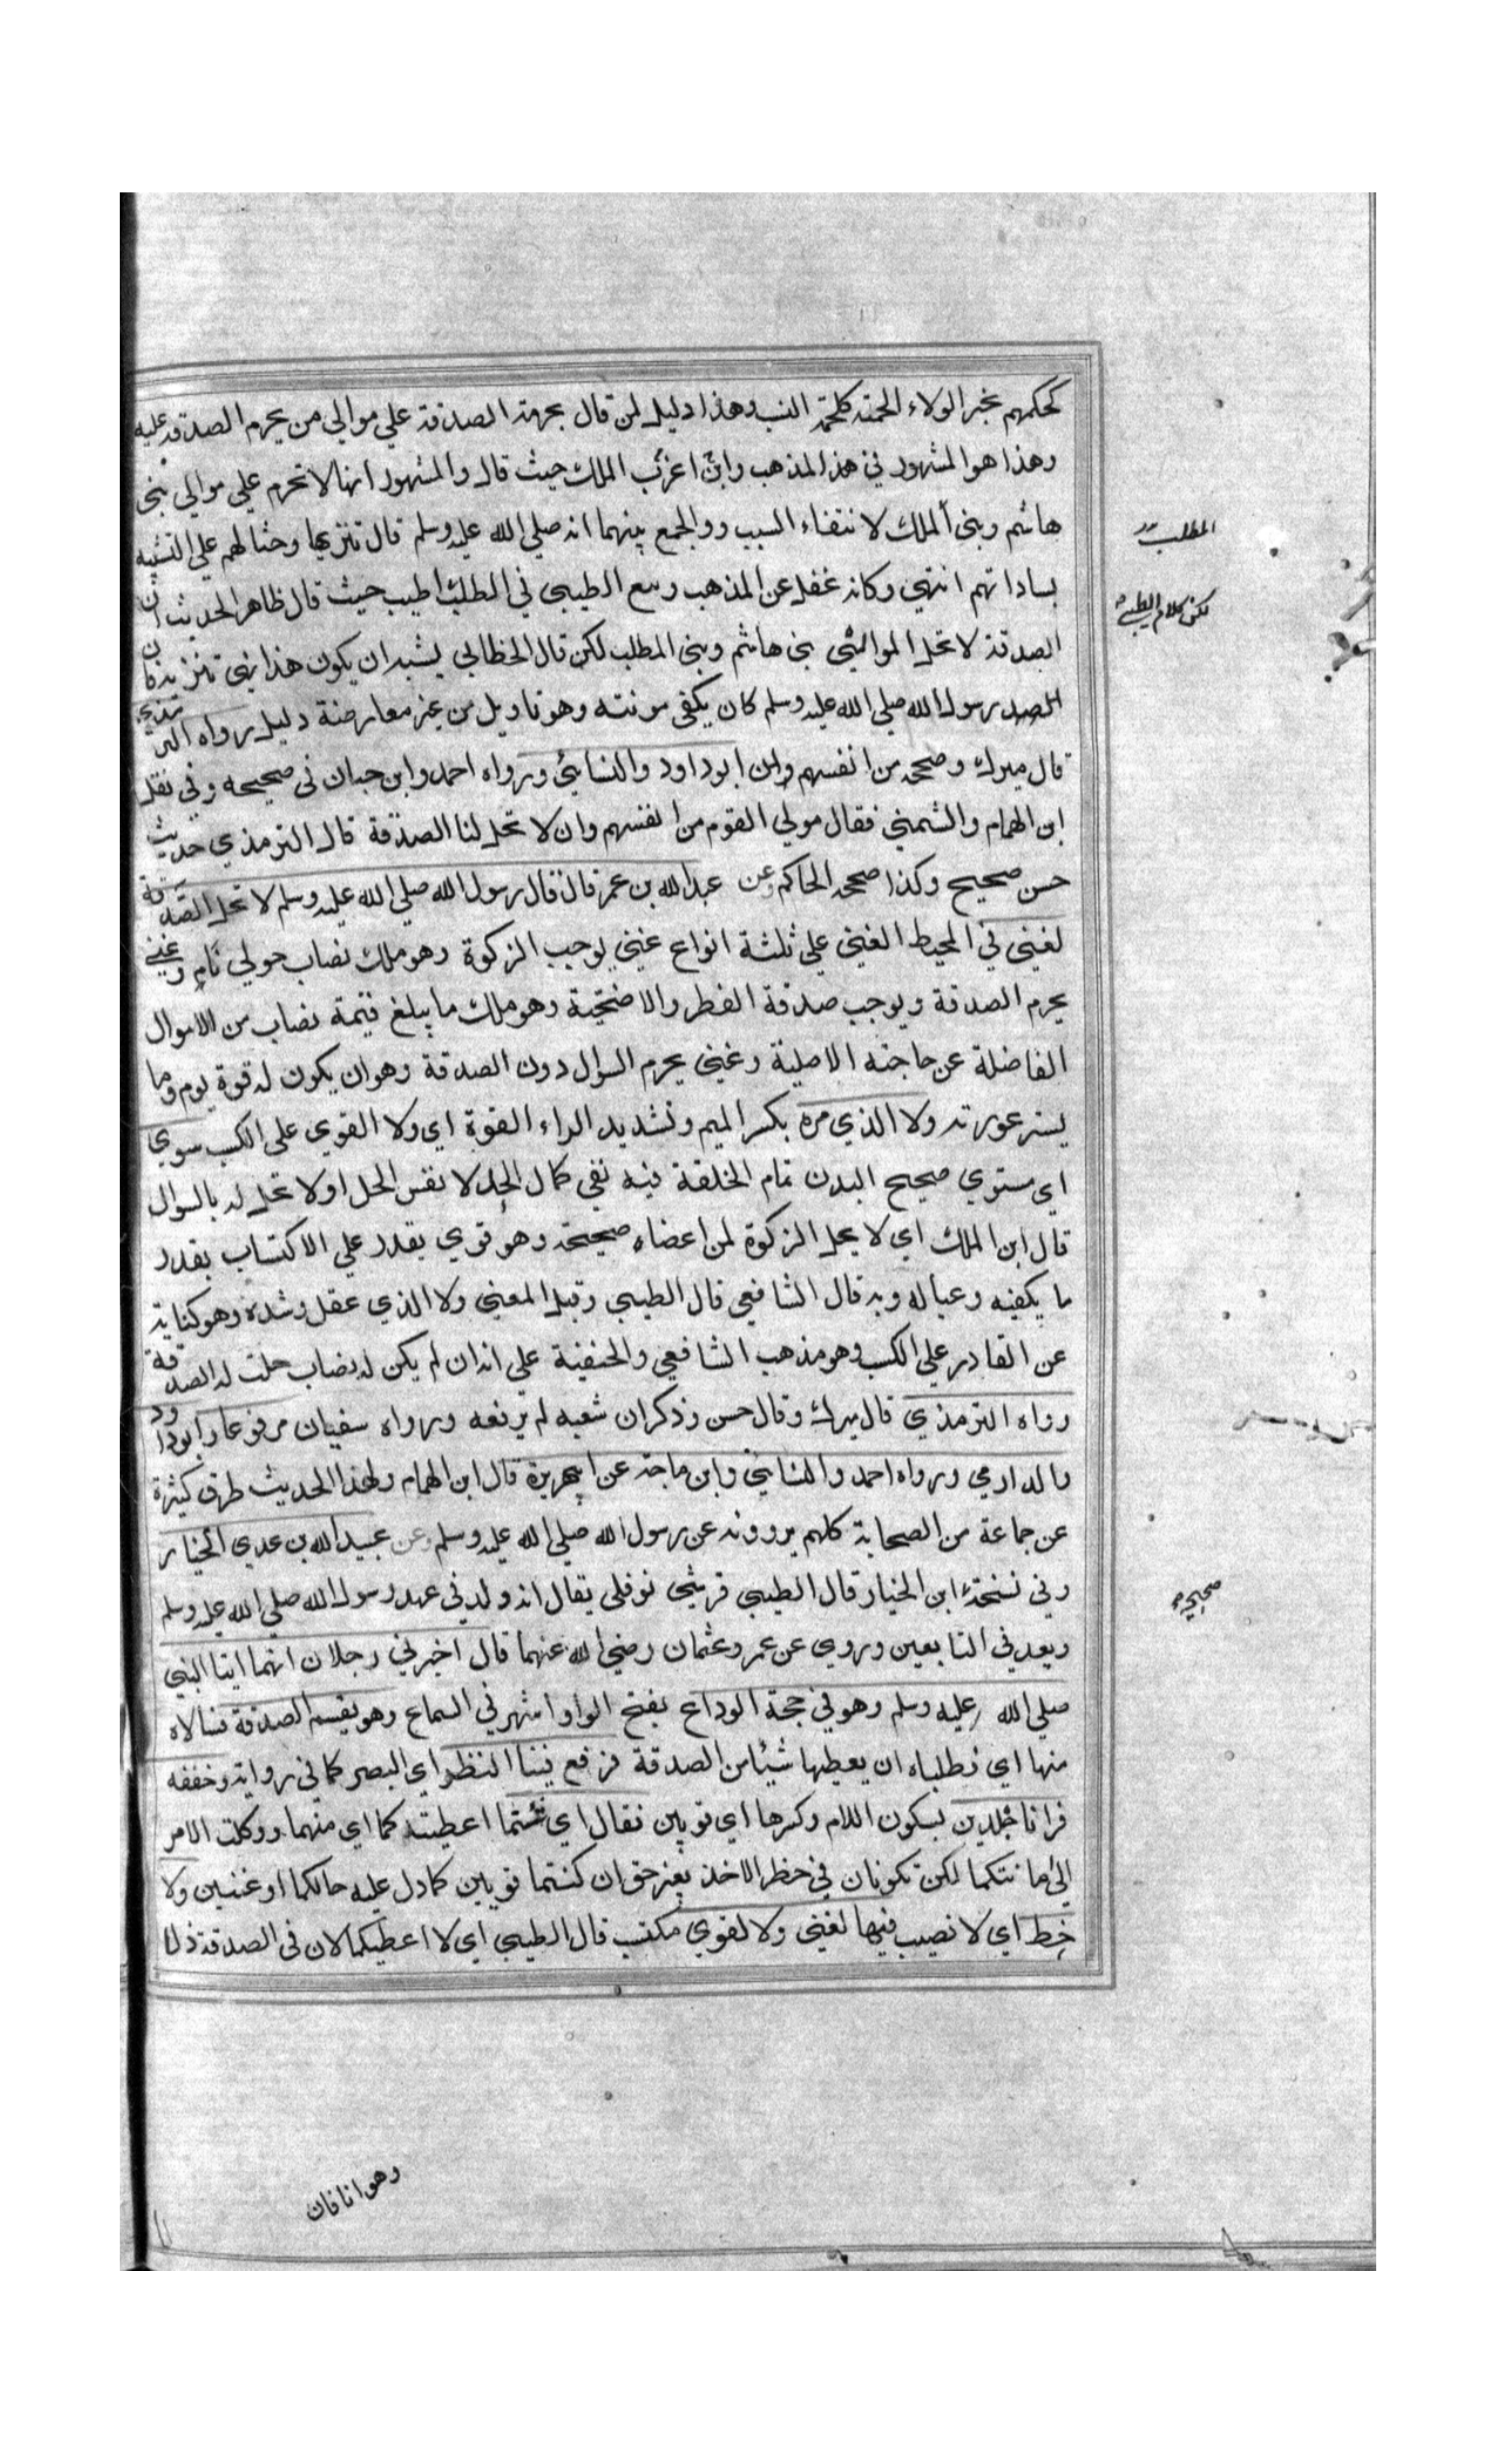 كحكمهم بخبر الولاء لحمة كلحمة النسب وهذا دليل لمن قال بحرمة الصدقة علي موالي من يحرم الصدقة عليه
وهذا هو المشهور في هذا المذهب وابن اغرب الملك حيث قال والمشهور انها لا تحرم علي موالي بني
هاشم وبني الملك لانتفاء السبب والجمع بينهما انه صلي الله عليه وسلم قال تنزيها وحثا لهم علي التشبه
بساداتهم انتهي وكانه غفل عن المذهب وتبع الطيبي في المطلب اطيب حيث قال ظاهر الحديث ان
الصدقة لا تحل لموالي بني هاشم وبني المطلب لكن قال الخطابي يشبه ان يكون هذا نهي تنزيه فان
رسول الله صلي الله عليه وسلم كان يكفي مونته وهو تاويل من غير معارضة دليل رواه الترمذي
قال ميرك وصححه من انفسهم وابن ابو داود والنسائي ورواه احمد وابن حبان في صحيحه وفي نقل
ابن الهمام والشمني فقال مولي القوم من انفسهم وان لا تحل لنا الصدقة قال الترمذي حديث
حسن صحيح وكذا صححه الحاكم وعن عبد الله بن عمر قال قال رسول الله صلي الله عليه وسلم لا تحل الصدقة
لغني في المحيط الغني علي ثلثة انواع غني يوجب الزكوة وهو ملك نصاب حولي نام وغني
يحرم الصدقة ويوجب صدقة الفطر والاضحية وهو ملك ما يبلغ قيمة نصاب من الاموال
الفاضلة عن حاجته الاصلية وغني يحرم السوال دون الصدقة وهو ان يكون له قوة يوم وما
يستر عورته ولا الذي مرة بكسر الميم وتشديد الراء القوة اي ولا القوي علي الكسب سوي
اي مستوي صحيح البدن تام الخلقة فيه نفي كمال الحل لا نفس الحل او لا تحل له بالسوال
قال ابن الملك اي لا يحل الزكوة لمن اعضاءه صحيحة وهو قوي يقدر علي الاكتساب بقدر
ما يكفيه وعياله وبه قال الشافعي قال الطيبي وقيل المعني ولا الذي عقل وشدة وهو كناية
عن القادر علي الكسب وهو مذهب الشافعي والحنفية علي انه ان لم يكن له نصاب حلت له الصدقة
رواه الترمذي قال ميرك وقال حسن وذكر ان شعبه لم يرفعه ورواه سفيان مرفوعا وابو داود
والدارمي ورواه احمد والنسائي وابن ماجة عن ابي هريرة قال ابن الهمام ولهذا الحديث طرق كثيرة
عن جماعة من الصحابة كلهم يروونه عن رسول الله صلي الله عليه وسلم وعن عبيد الله بن عدي الخيار
وفي نسخة ابن الخيار قال الطيبي قرشي نوفلي يقال انه ولد في عهد رسول الله صلي الله عليه وسلم
ويعد في التابعين وروي عن عمر وعثمان رضي الله عنهما قال اخبرني رجلان انهما اتيا النبي
صلي الله عليه وسلم وهو في حجة الوداع بفتح الواو اشهر في السماع وهو يقسم الصدقة فسالاه
منها اي فطلباه ان يعطيها شيئا من الصدقة فرفع فينا النظر اي البصر كما في رواية وخفضه
فرانا جلدين بسكون اللام وكسرها اي قويين فقال اي شئتما اعطيتكما اي منهما ووكلت الامر
الي امانتكما لكن تكونان في خطر الاخذ بغير حق ان كنتما قويين كما دل عليه حالكما او غنيين ولا
حظ اي لا نصيب فيها لغني ولا لقوي مكتسب قال الطيبي اي لا اعطيكما لان في الصدقة ذلا
المطلب
لكن كلام الطيبي
صحيح
وهوانا فان